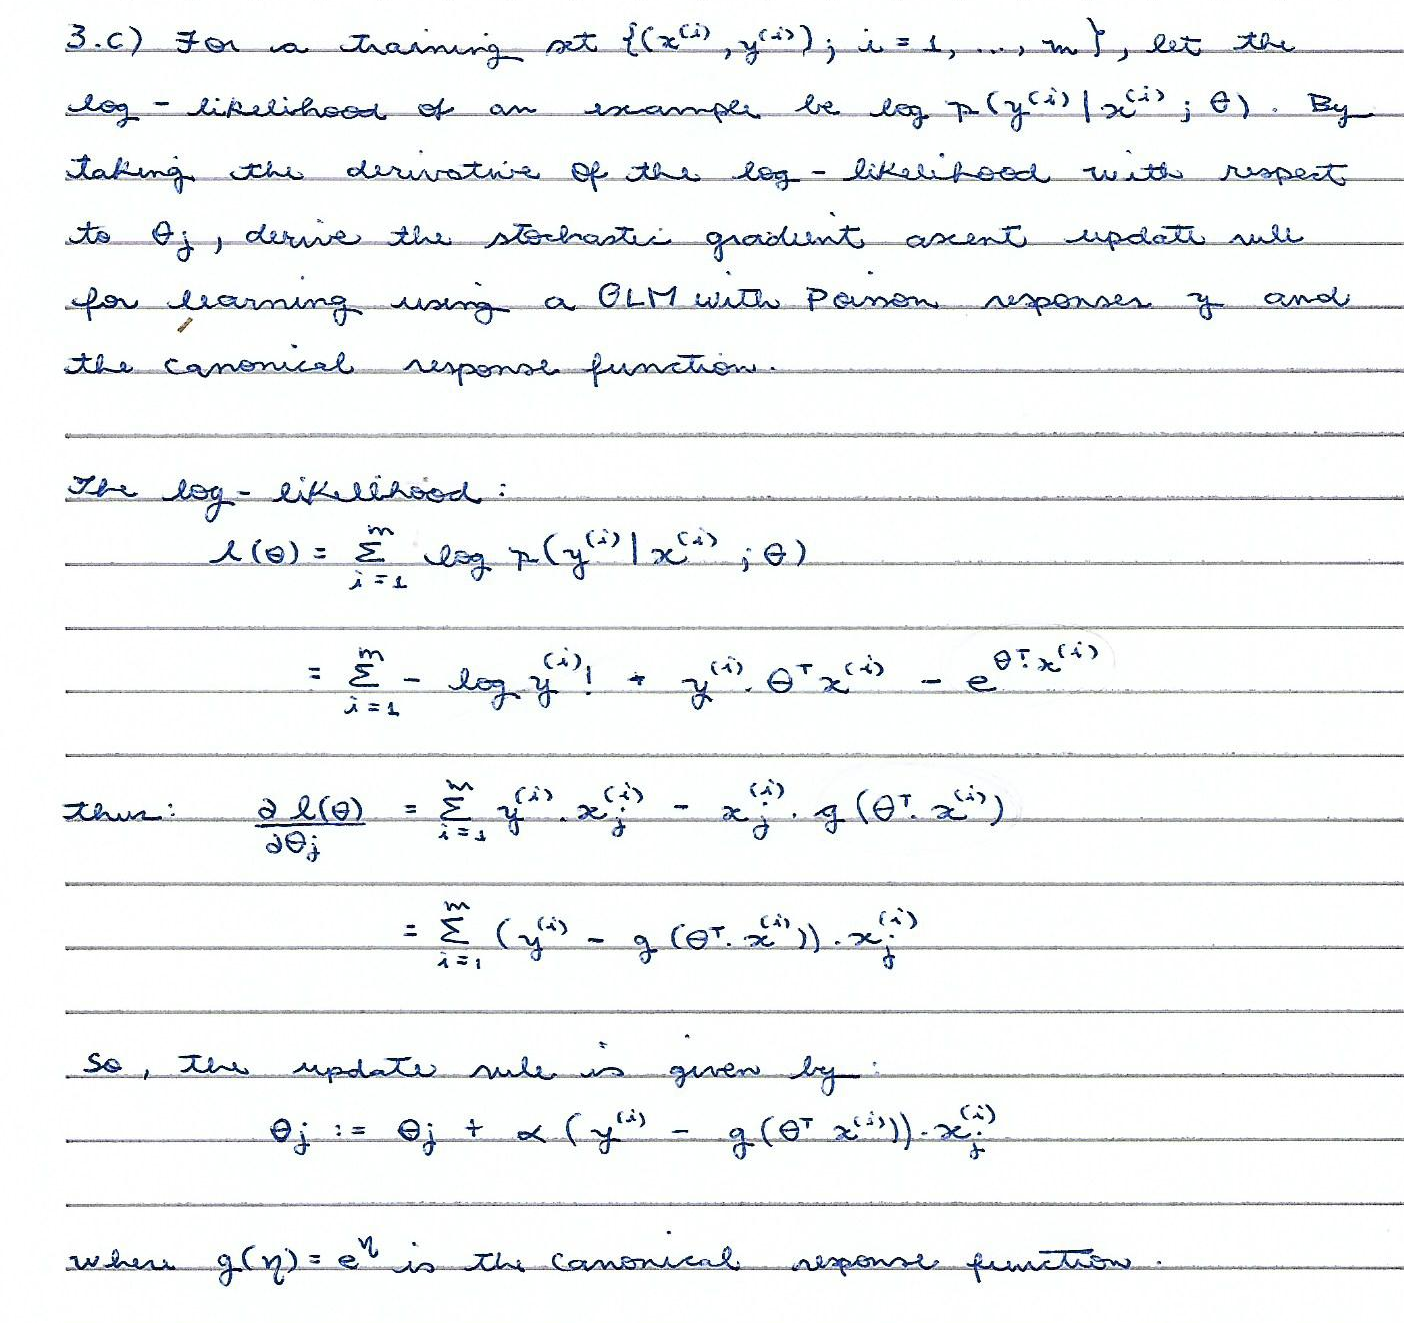 3.c) For a training set {(x⁽ⁱ⁾, y⁽ⁱ⁾); i = 1, ..., m}, let the
log - likelihood of an example be log p(y⁽ⁱ⁾ | x⁽ⁱ⁾ ; θ). By
taking the derivative of the log - likelihood with respect
to θj, derive the stochastic gradient ascent update rule
for learning using a GLM with Poisson responses y and
the canonical response function.
The log - likelihood :
l(θ) = Σ_{i=1}^{m} log p(y⁽ⁱ⁾ | x⁽ⁱ⁾ ; θ)
= Σ_{i=1}^{m} - log y⁽ⁱ⁾! + y⁽ⁱ⁾. θᵀx⁽ⁱ⁾ - e^{θᵀ. x⁽ⁱ⁾}
thus: ∂ l(θ)/∂θj = Σ_{i=1}^{m} y⁽ⁱ⁾. xj⁽ⁱ⁾ - xj⁽ⁱ⁾. g(θᵀ. x⁽ⁱ⁾)
= Σ_{i=1}^{m} (y⁽ⁱ⁾ - g(θᵀ. x⁽ⁱ⁾)). xj⁽ⁱ⁾
So, the update rule is given by:
θj := θj + α (y⁽ⁱ⁾ - g(θᵀ x⁽ⁱ⁾)). xj⁽ⁱ⁾
where g(η) = e^η is the canonical response function.